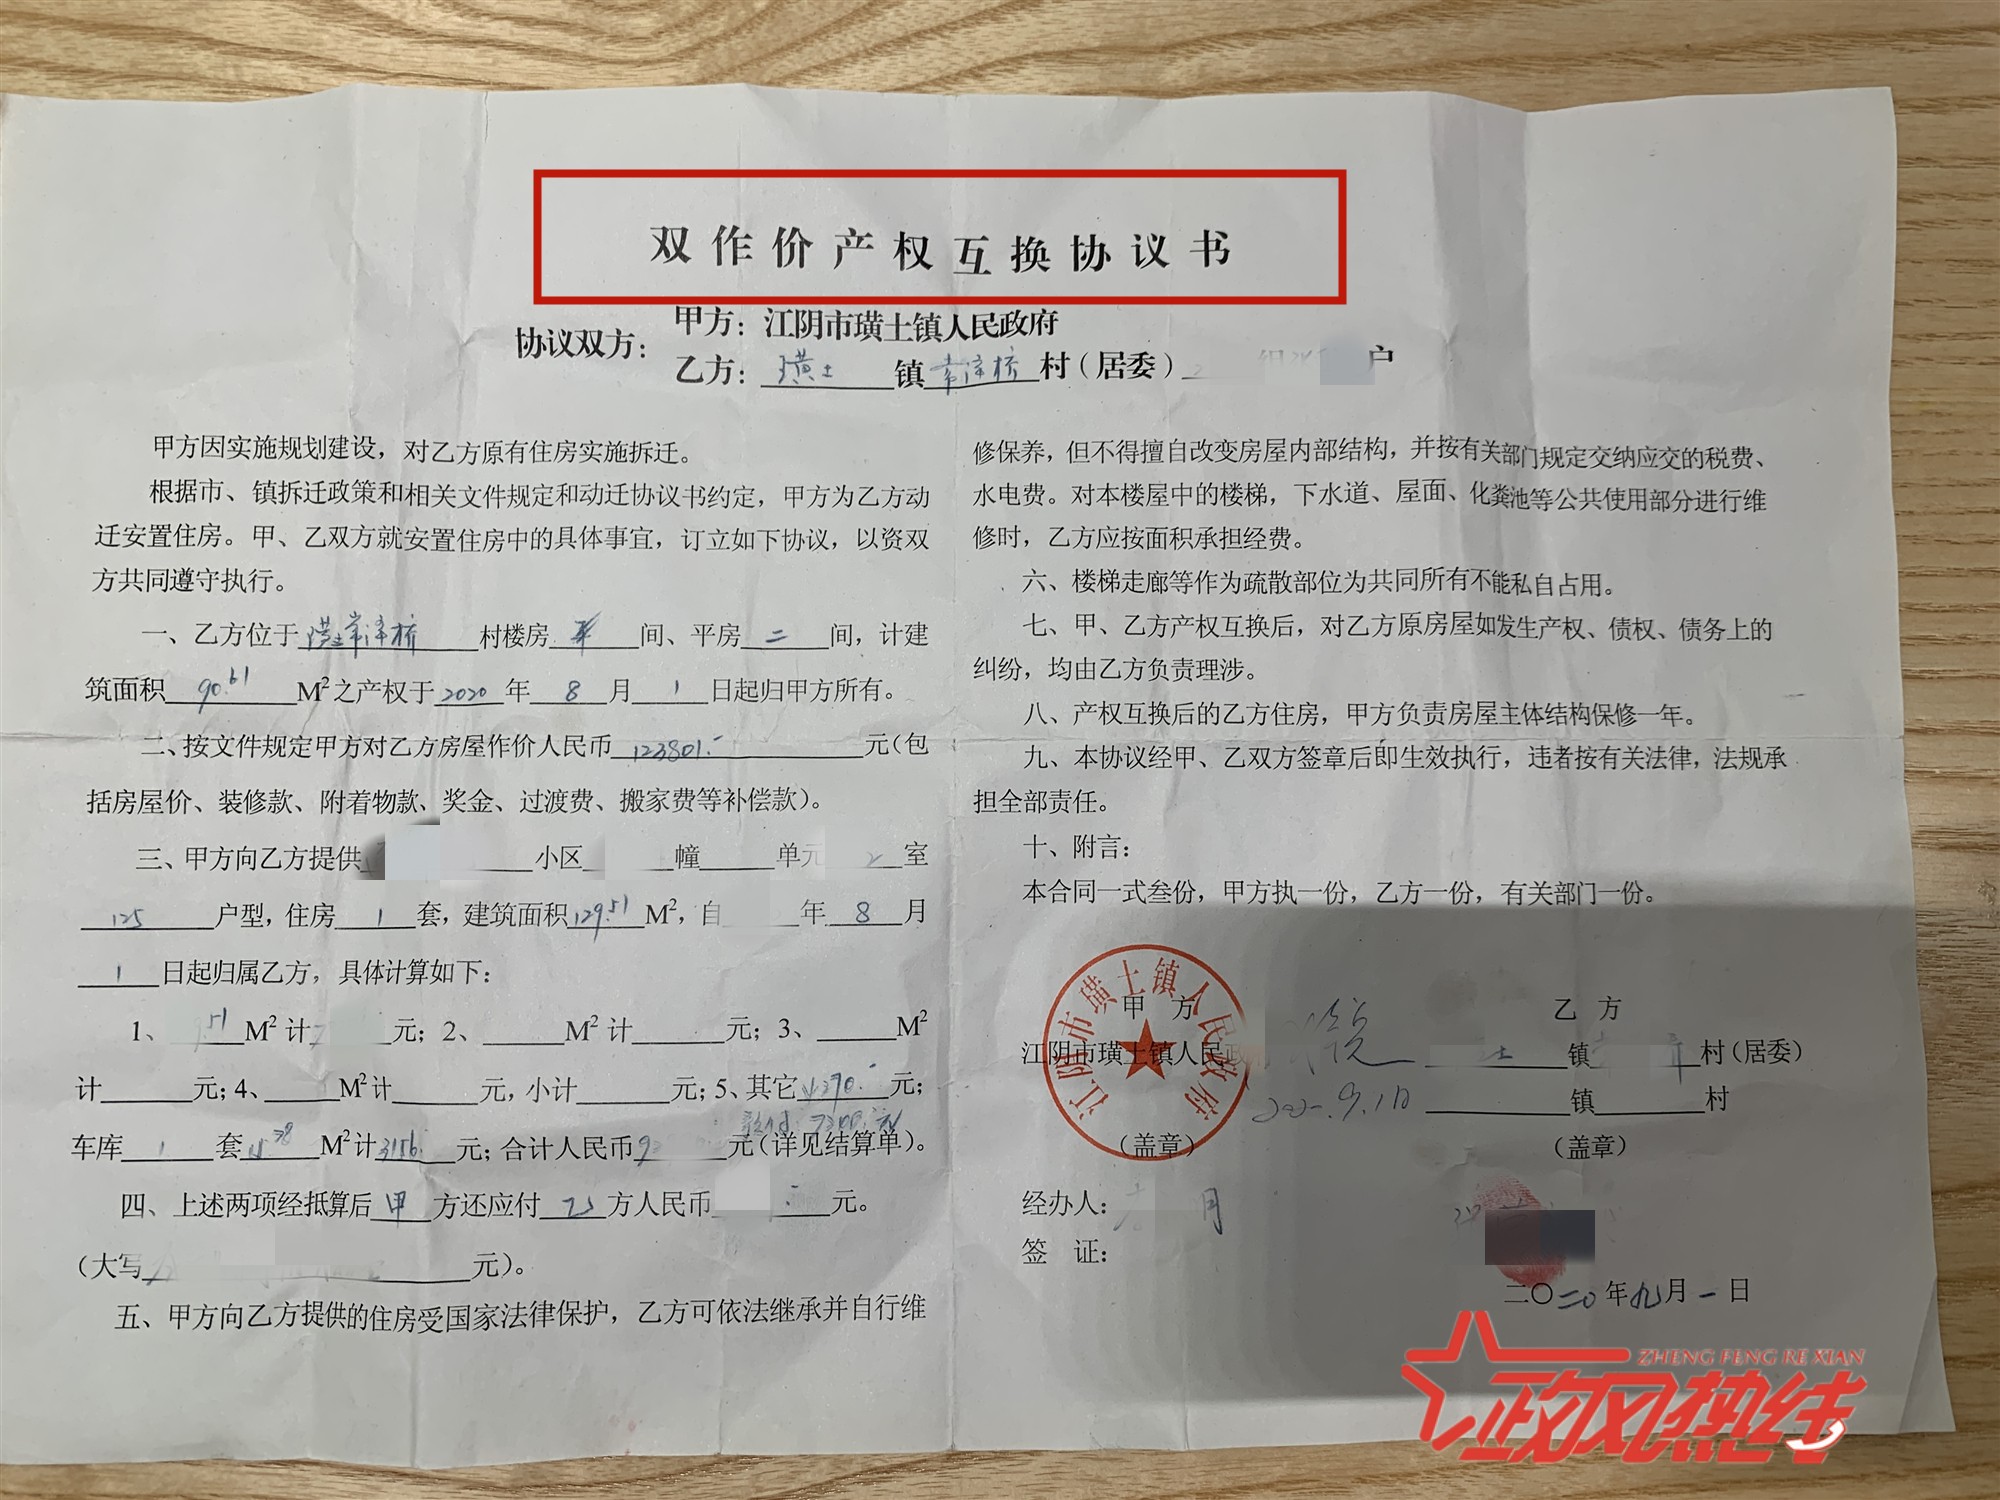 双作价产权互换协议书
协议双方：
甲方：江阴市璜土镇人民政府
乙方：璜土镇常泽桥村（居委） 户
甲方因实施规划建设，对乙方原有住房实施拆迁。
根据市、镇拆迁政策和相关文件规定和动迁协议书约定，甲方为乙方动
迁安置住房。甲、乙双方就安置住房中的具体事宜，订立如下协议，以资双
方共同遵守执行。
一、乙方位于璜土常泽桥村楼房 间、平房二间，计建
筑面积90.61M²之产权于2020年8月1日起归甲方所有。
二、按文件规定甲方对乙方房屋作价人民币123801.-元（包
括房屋价、装修款、附着物款、奖金、过渡费、搬家费等补偿款）。
三、甲方向乙方提供 小区 幢 单元 室
125户型，住房1套，建筑面积129.51M²，自 年8月
1日起归属乙方，具体计算如下：
1、 M²计 元；2、 M²计 元；3、 M²
计 元；4、 M²计 元，小计 元；5、其它 元；
车库1套 M²计3156元；合计人民币 元（详见结算单）。
四、上述两项经抵算后甲方还应付乙方人民币 元。
（大写 元）。
五、甲方向乙方提供的住房受国家法律保护，乙方可依法继承并自行维
修保养，但不得擅自改变房屋内部结构，并按有关部门规定交纳应交的税费、
水电费。对本楼屋中的楼梯，下水道、屋面、化粪池等公共使用部分进行维
修时，乙方应按面积承担经费。
六、楼梯走廊等作为疏散部位为共同所有不能私自占用。
七、甲、乙方产权互换后，对乙方原房屋如发生产权、债权、债务上的
纠纷，均由乙方负责理涉。
八、产权互换后的乙方住房，甲方负责房屋主体结构保修一年。
九、本协议经甲、乙双方签章后即生效执行，违者按有关法律，法规承
担全部责任。
十、附言：
本合同一式叁份，甲方执一份，乙方一份，有关部门一份。
甲 方
江阴市璜土镇人民政
（盖章）
江阴市璜土镇人民政府
乙 方
镇 村（居委）
镇 村
（盖章）
经办人：
签 证：
二〇二0年九月一日
ZHENG FENG RE XIAN
政风热线